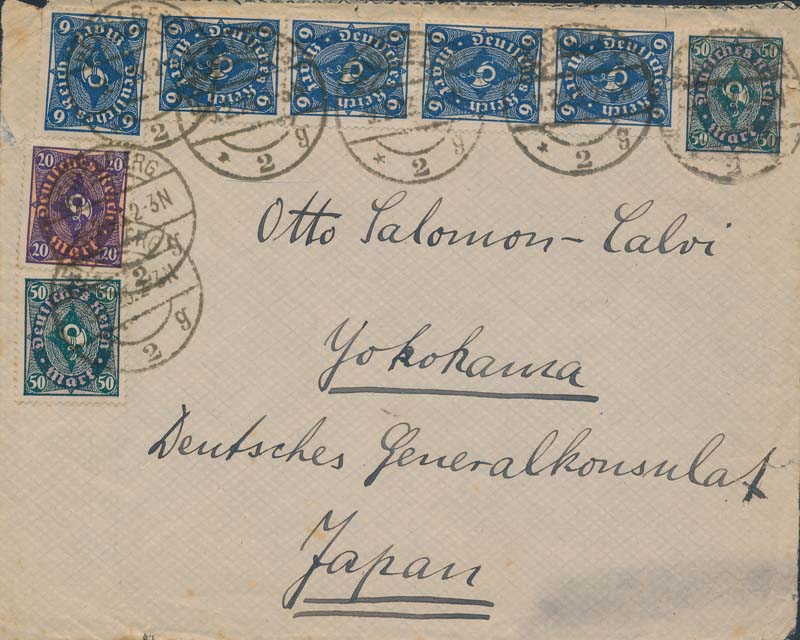 6 Deutsches Reich Mark 6
6 Deutsches Reich Mark 6
6 Deutsches Reich Mark 6
6 Deutsches Reich Mark 6
6 Deutsches Reich Mark 6
50 Deutsches Reich 50
50 Mark 50
* 2 g
* 2 g
* 2 g
* 2 g
20 Deutsches Reich 20
20 Mark 20
2-3N
2 g
50 Deutsches Reich 50
50 Mark 50
2 g
Otto Salomon-Calvi
Yokohama
Deutsches Generalkonsulat
Japan